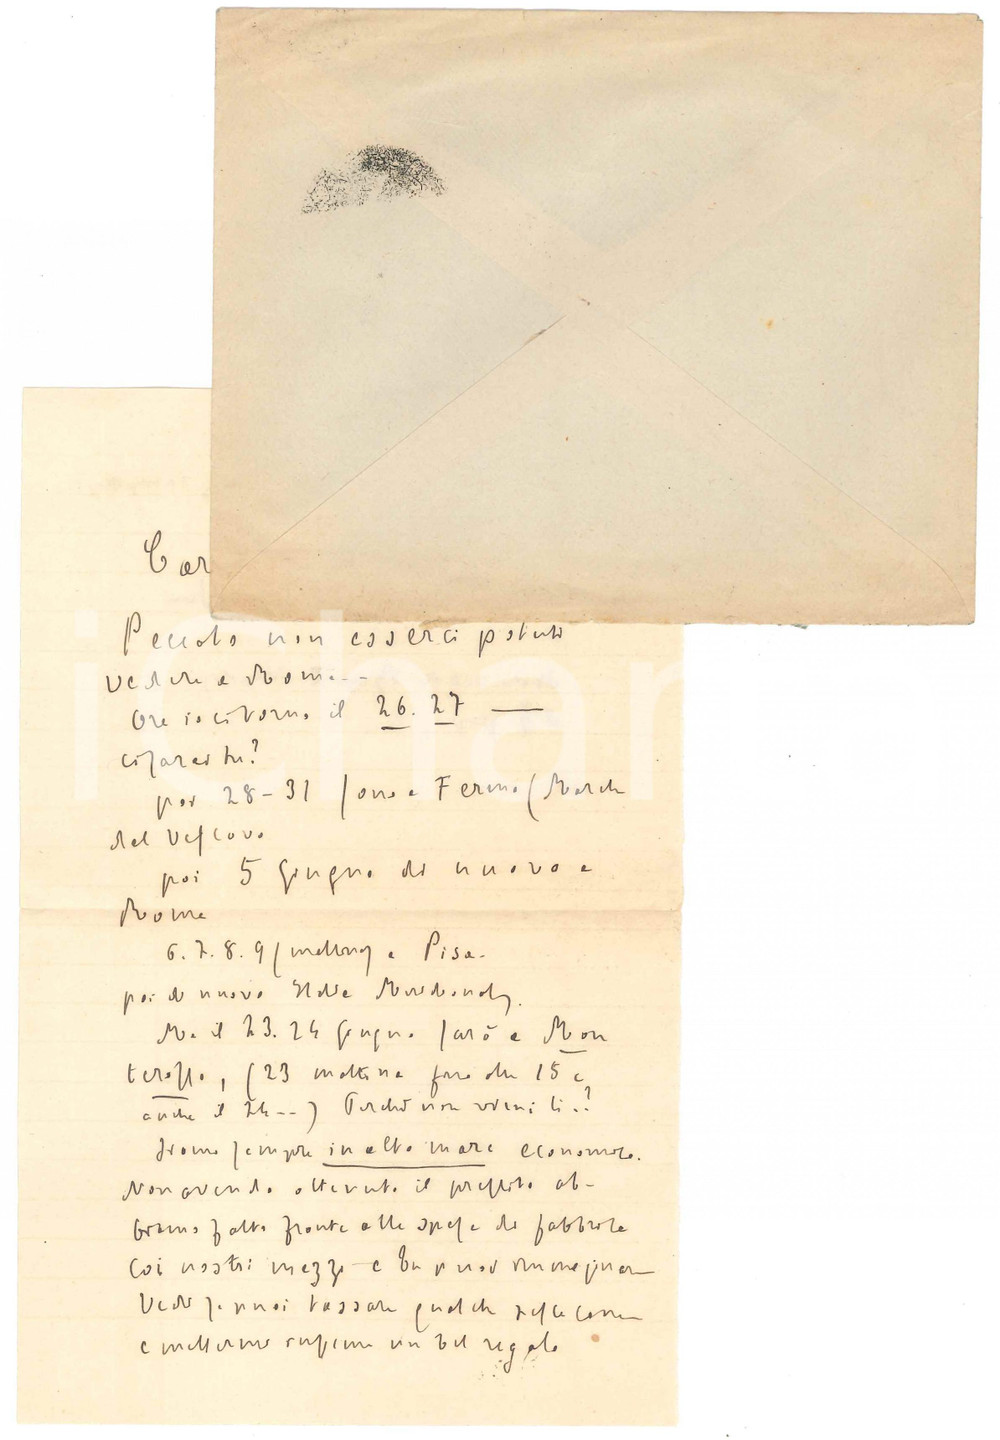 Car
Peccato non esserci potuti
vedere a Roma...
Ora io ci torno il 26. 27 —
ci sarai tu?
poi 28-31 sono a Fermo (Marche
dal Vescovo
poi 5 Giugno di nuovo a
Roma
6. 7. 8. 9 a Pisa.
poi di nuovo
Ma il 23. 24 Giugno sarò a Mon
terosso, (23 mattina fino alle 15 e
anche il 24--) Perché non vieni lì..?
Siamo sempre in alto mare economico.
Non avendo ottenuto il prestito ab-
biamo fatto fronte alle spese di fabbrica
coi nostri mezzi e tu puoi immaginare
Vedi se puoi tassare qualche
e mettermi insieme un bel regalo